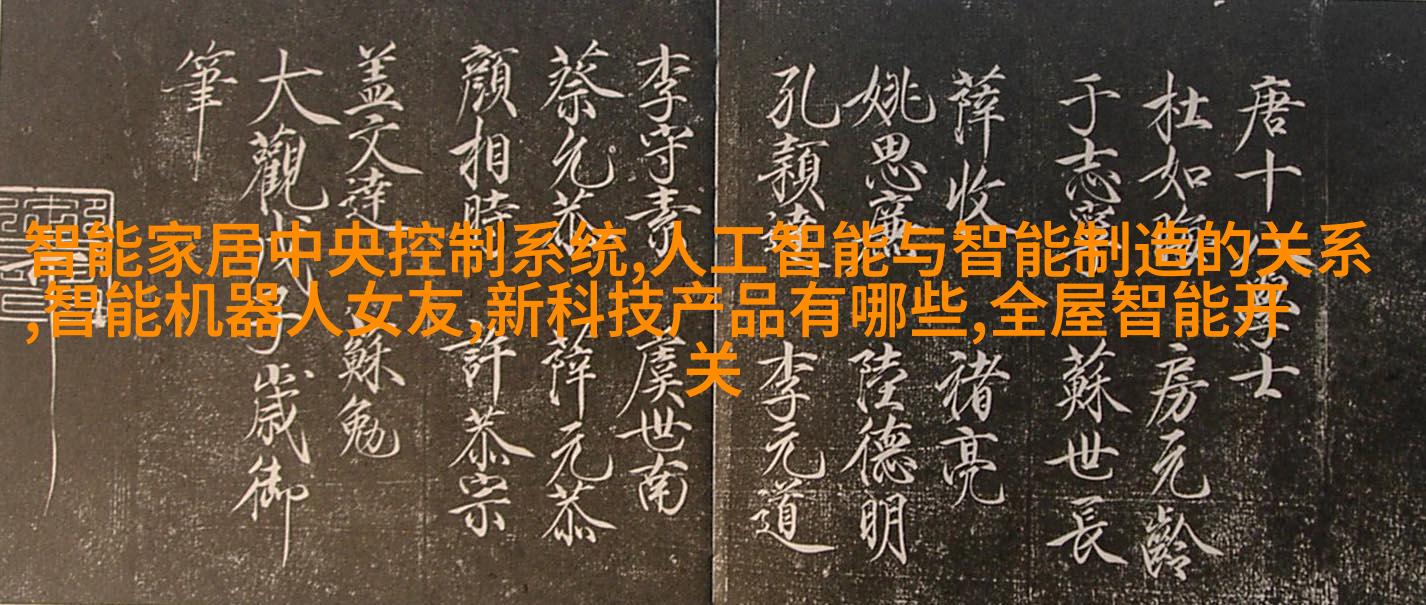 智能家居中央控制系统,人工智能与智能制造的关系
,智能机器人女友,新科技产品有哪些,全屋智能开
关
唐十八學士
杜如晦 房元齡
于志寧 蘇世長
薛收 褚亮
姚思廉 陸德明
孔穎達 李元道
李守素 虞世南
蔡允恭 薛元恭
顏相時 許恭宗
盖文達 蘇勉
大觀戊子歲御
筆